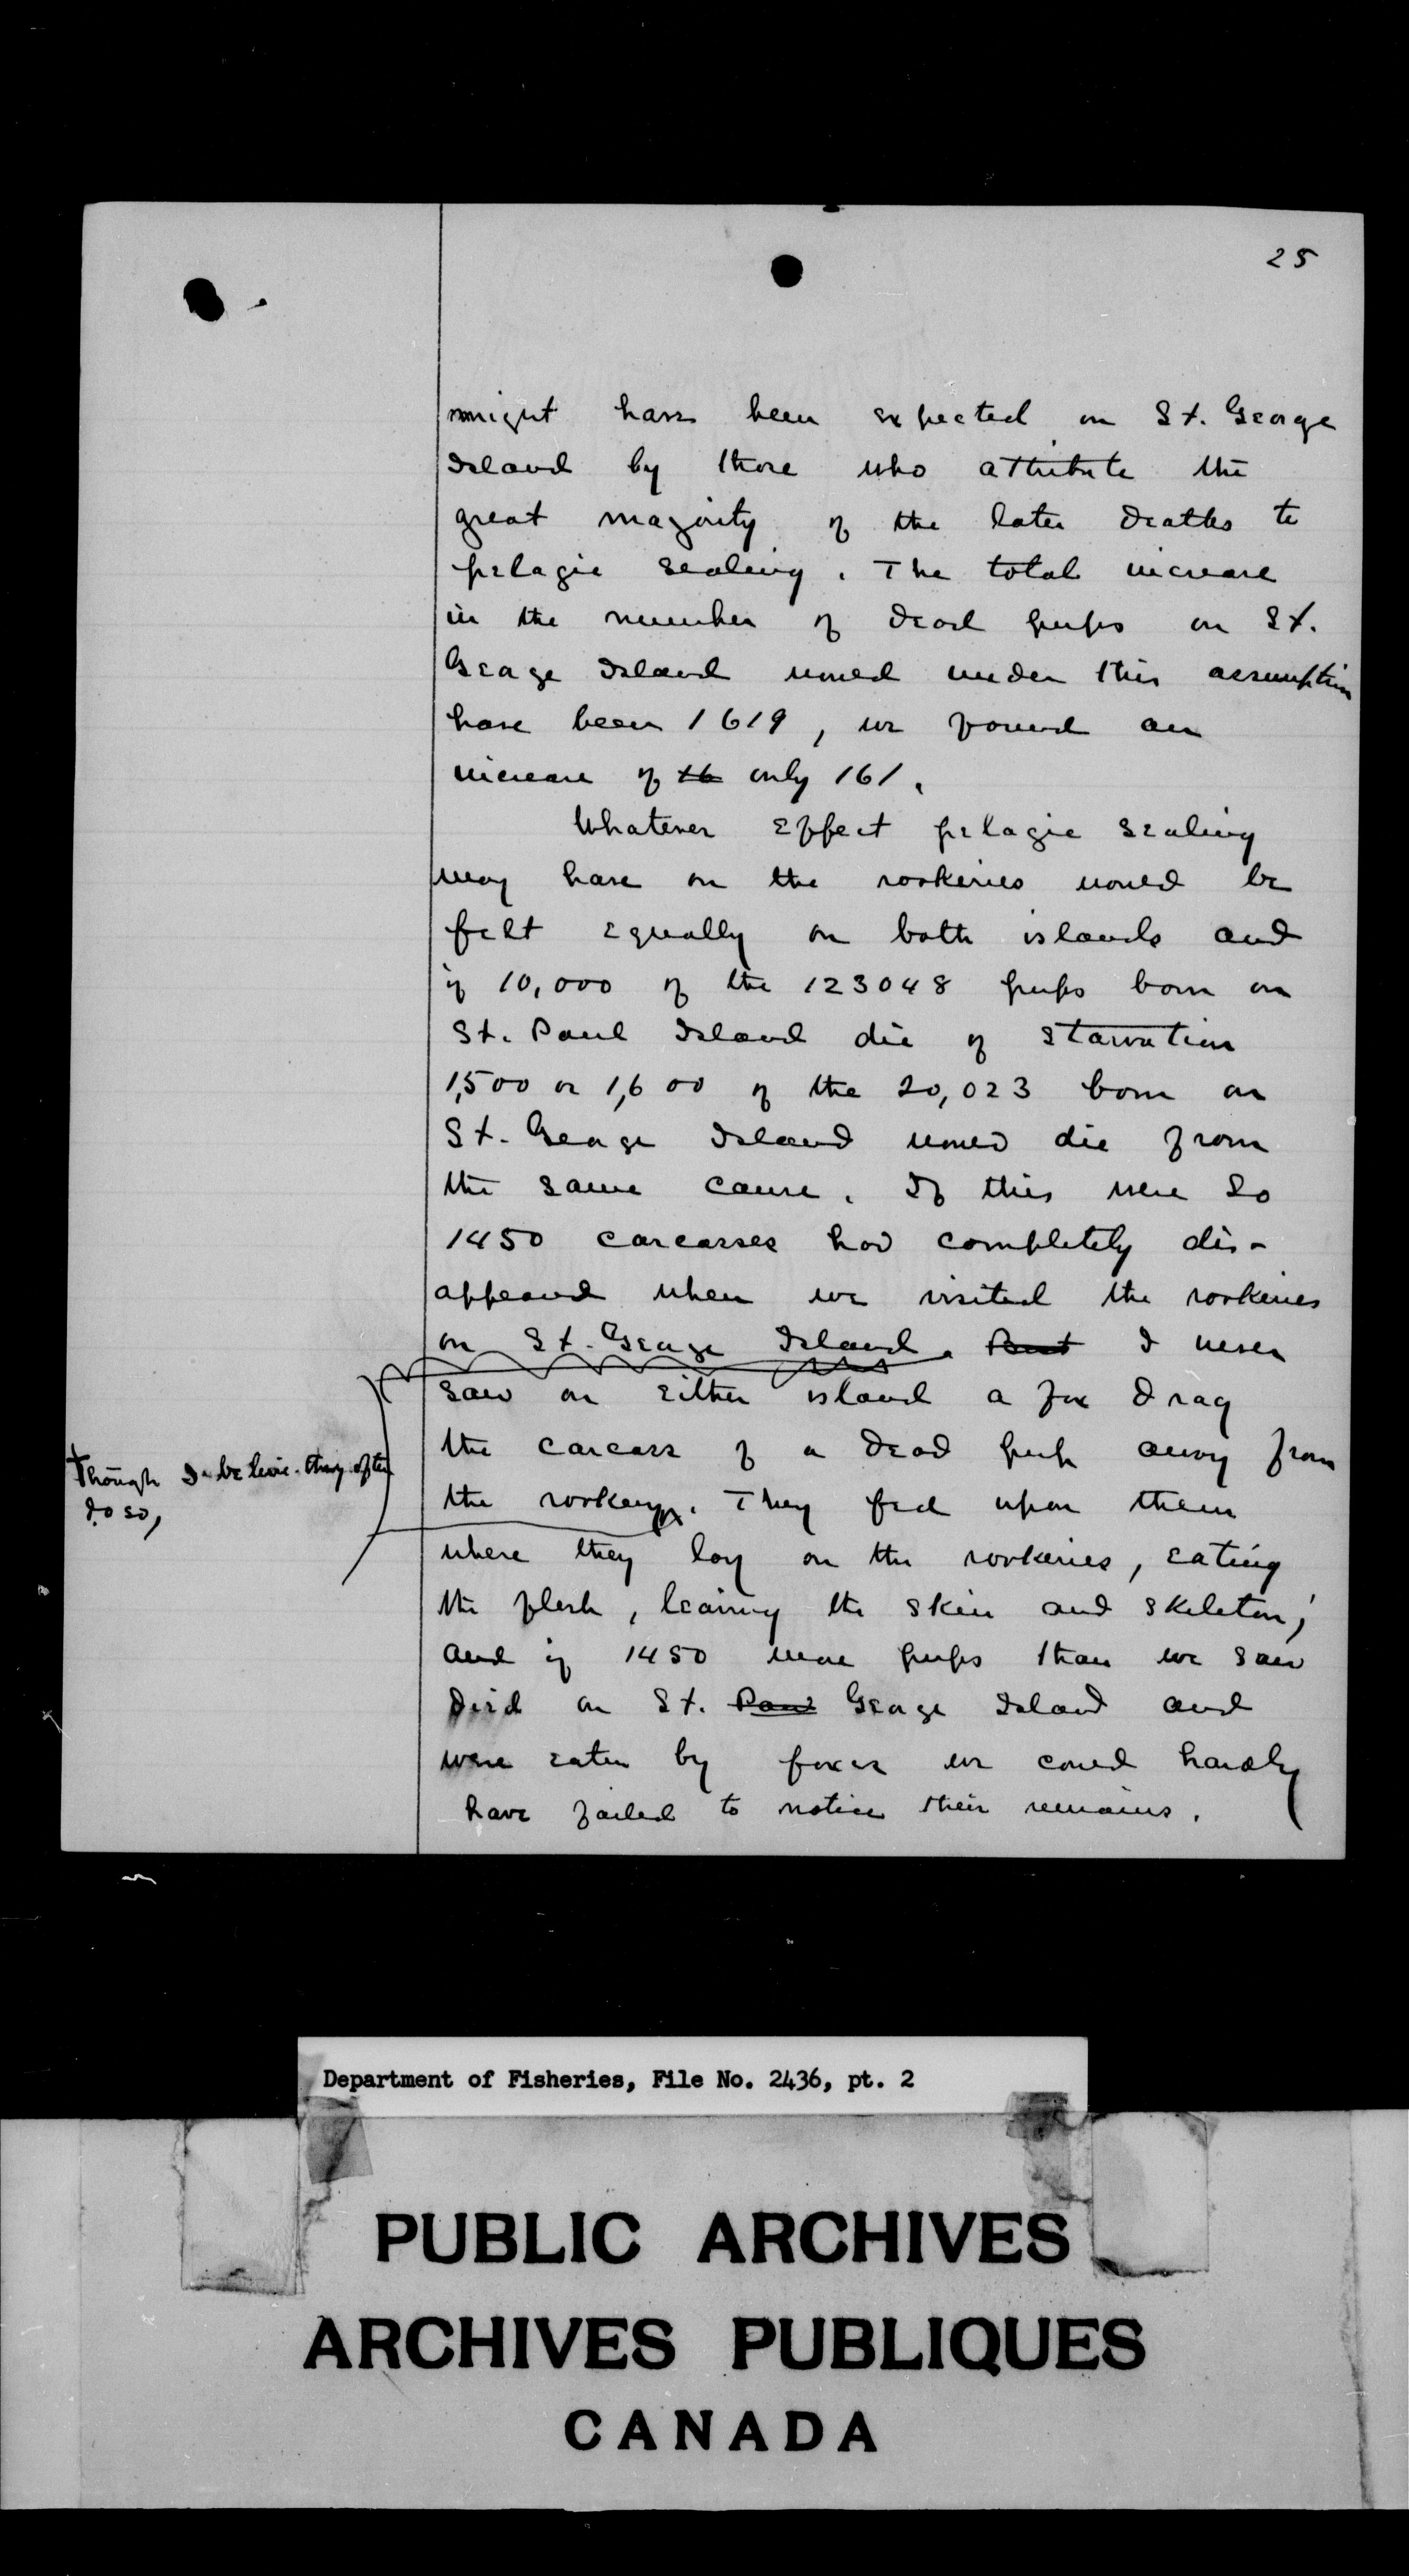 25
might have been expected on St. George
Island by those who attribute the
great majority of the later deaths to
pelagic sealing. The total increase
in the number of dead pups on St.
George Island would under this assumption
have been 1619, we found an
increase of th only 161.
Whatever effect pelagic sealing
may have on the rookeries would be
felt equally on both islands and
if 10,000 of the 123048 pups born on
St. Paul Island die of starvation
1,500 or 1,600 of the 20,023 born on
St. George Island would die from
the same cause. If this were so
1450 carcasses had completely dis-
appeared when we visited the rookeries
on St. George Island. But I never
saw on either island a fox drag
the carcass of a dead pup away from
though I believe they often
do so,
the rookery. They fed upon them
where they lay on the rookeries, eating
the flesh, leaving the skin and skeleton;
and if 1450 more pups than we saw
died on St. Paul George Island and
were eaten by foxes we could hardly
have failed to notice their remains.
Department of Fisheries, File No. 2436, pt. 2
PUBLIC ARCHIVES
ARCHIVES PUBLIQUES
CANADA